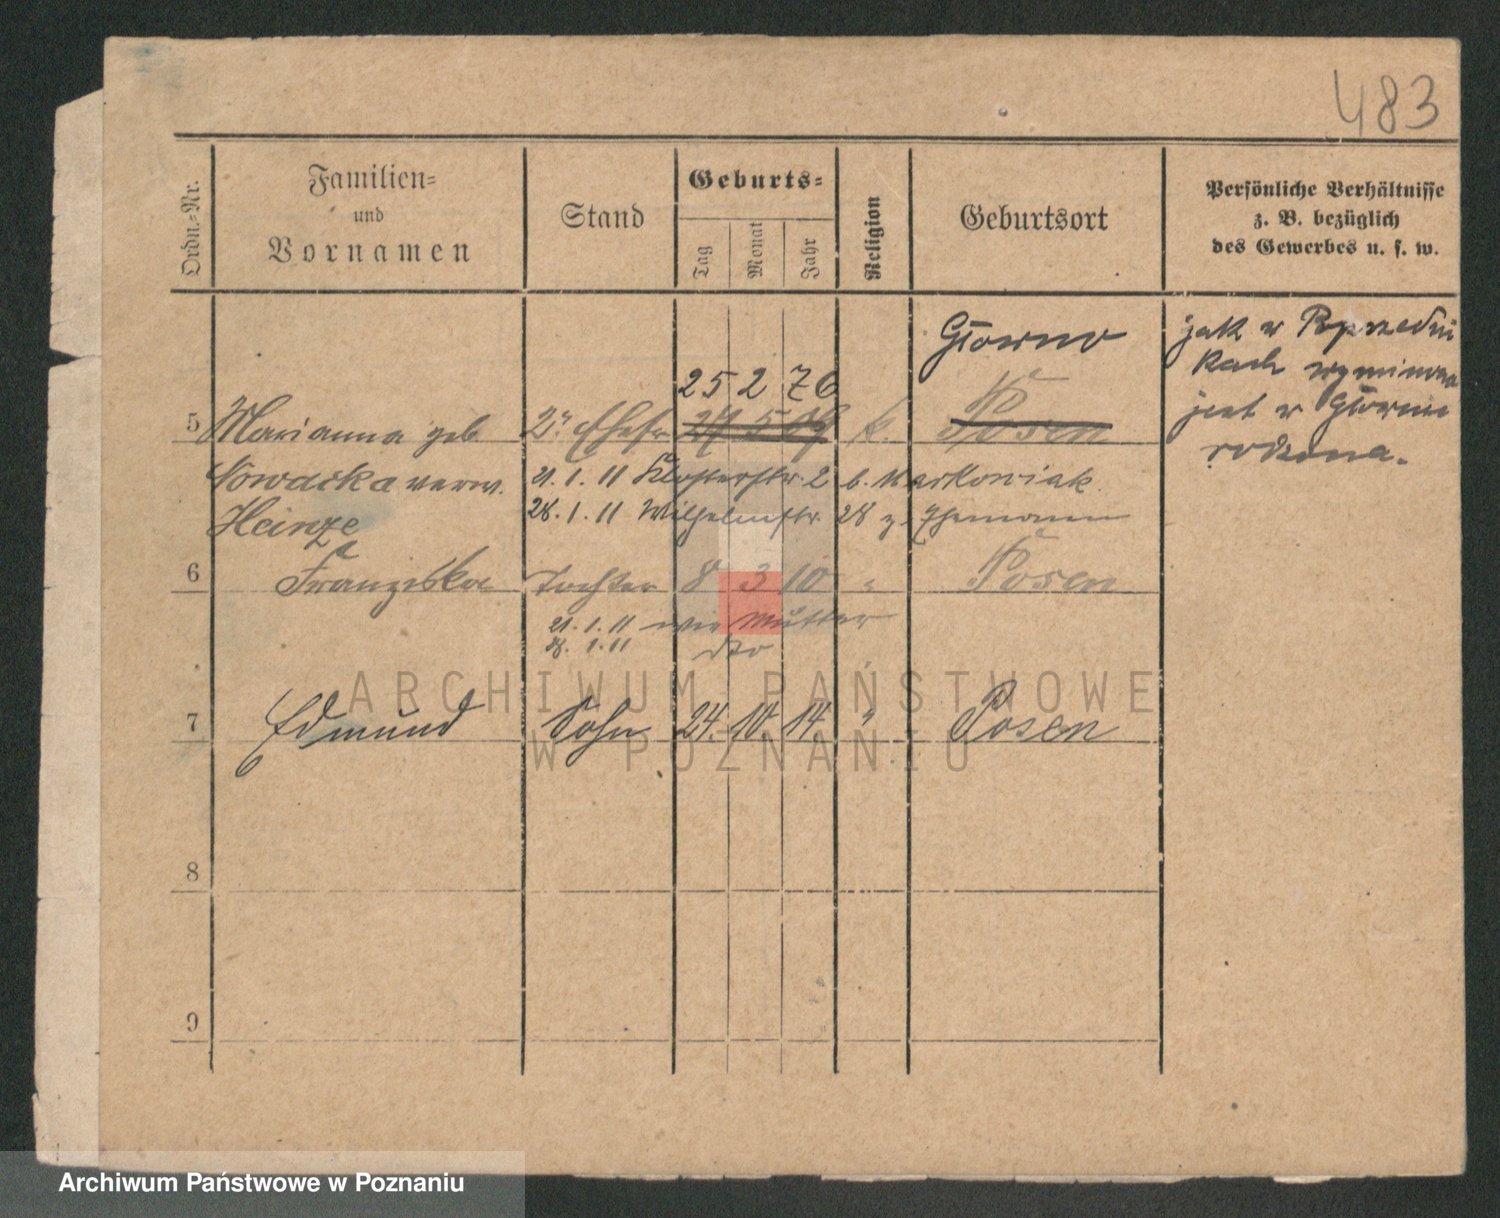 483
Ordn.-Nr.
Familien-
und
Vornamen
Stand
Geburts-
Tag
Monat
Jahr
Religion
Geburtsort
Persönliche Verhältnisse
z. B. bezüglich
des Gewerbes u. s. w.
Głowno
jak w
25 2 76
5 Marianna geb. 2te Ehefr. 27 5 k. Posen
jest w Głownie
Nowacka verw. 21.1.11 Klosterstr. 2 b. Markowiak
rodzona.
Heinze 28.1.11 Wilhelmstr. 28 z. Ehemann
6 Franziska Tochter 8 3 10 " Posen
21.1.11 wie Mutter
28.1.11 dto
7 Edmund Sohn 24. 10. 14. " Posen
8
9
ARCHIWUM PAŃSTWOWE
W POZNANIU
Archiwum Państwowe w Poznaniu